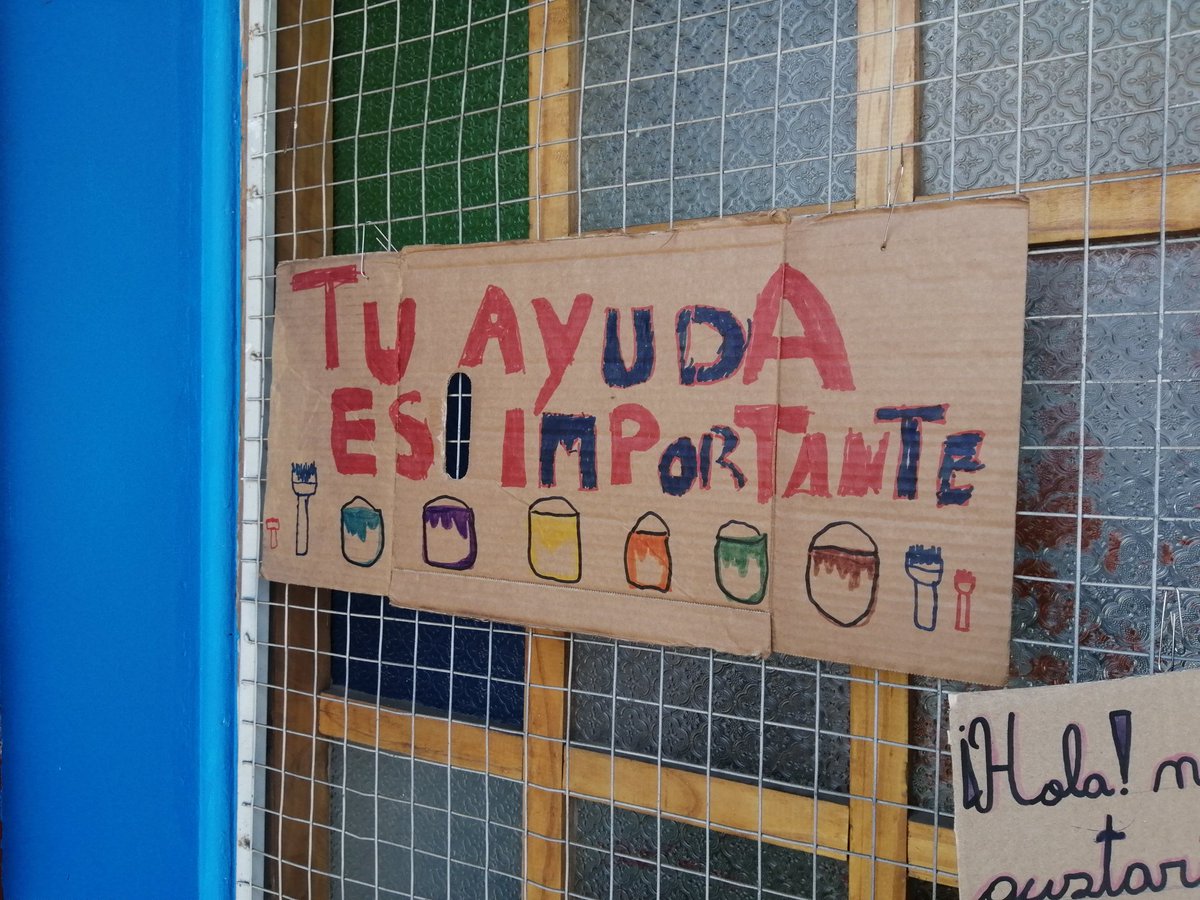 TU AYUDA
ES IMPORTANTE
¡Hola!
gustar